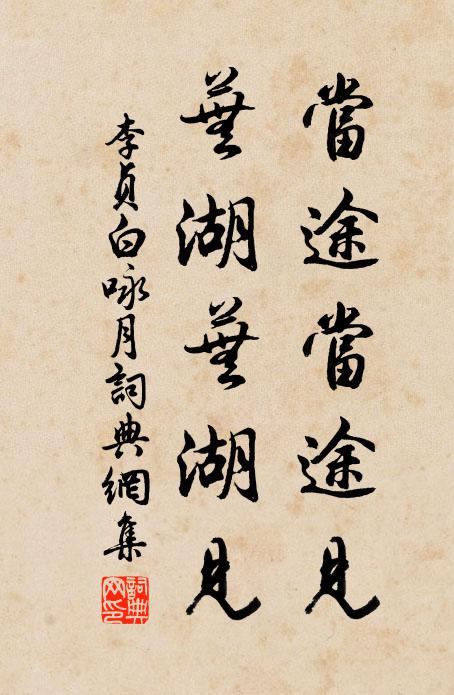 當途當途見
蕪湖蕪湖見
李貞白咏月詞典網集
詞典网印